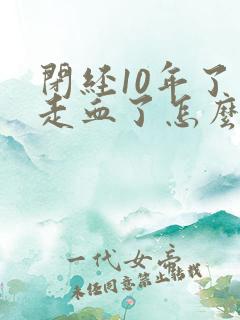 閉経10年了
走血了怎麼
一代女帝
未经同意禁止转载